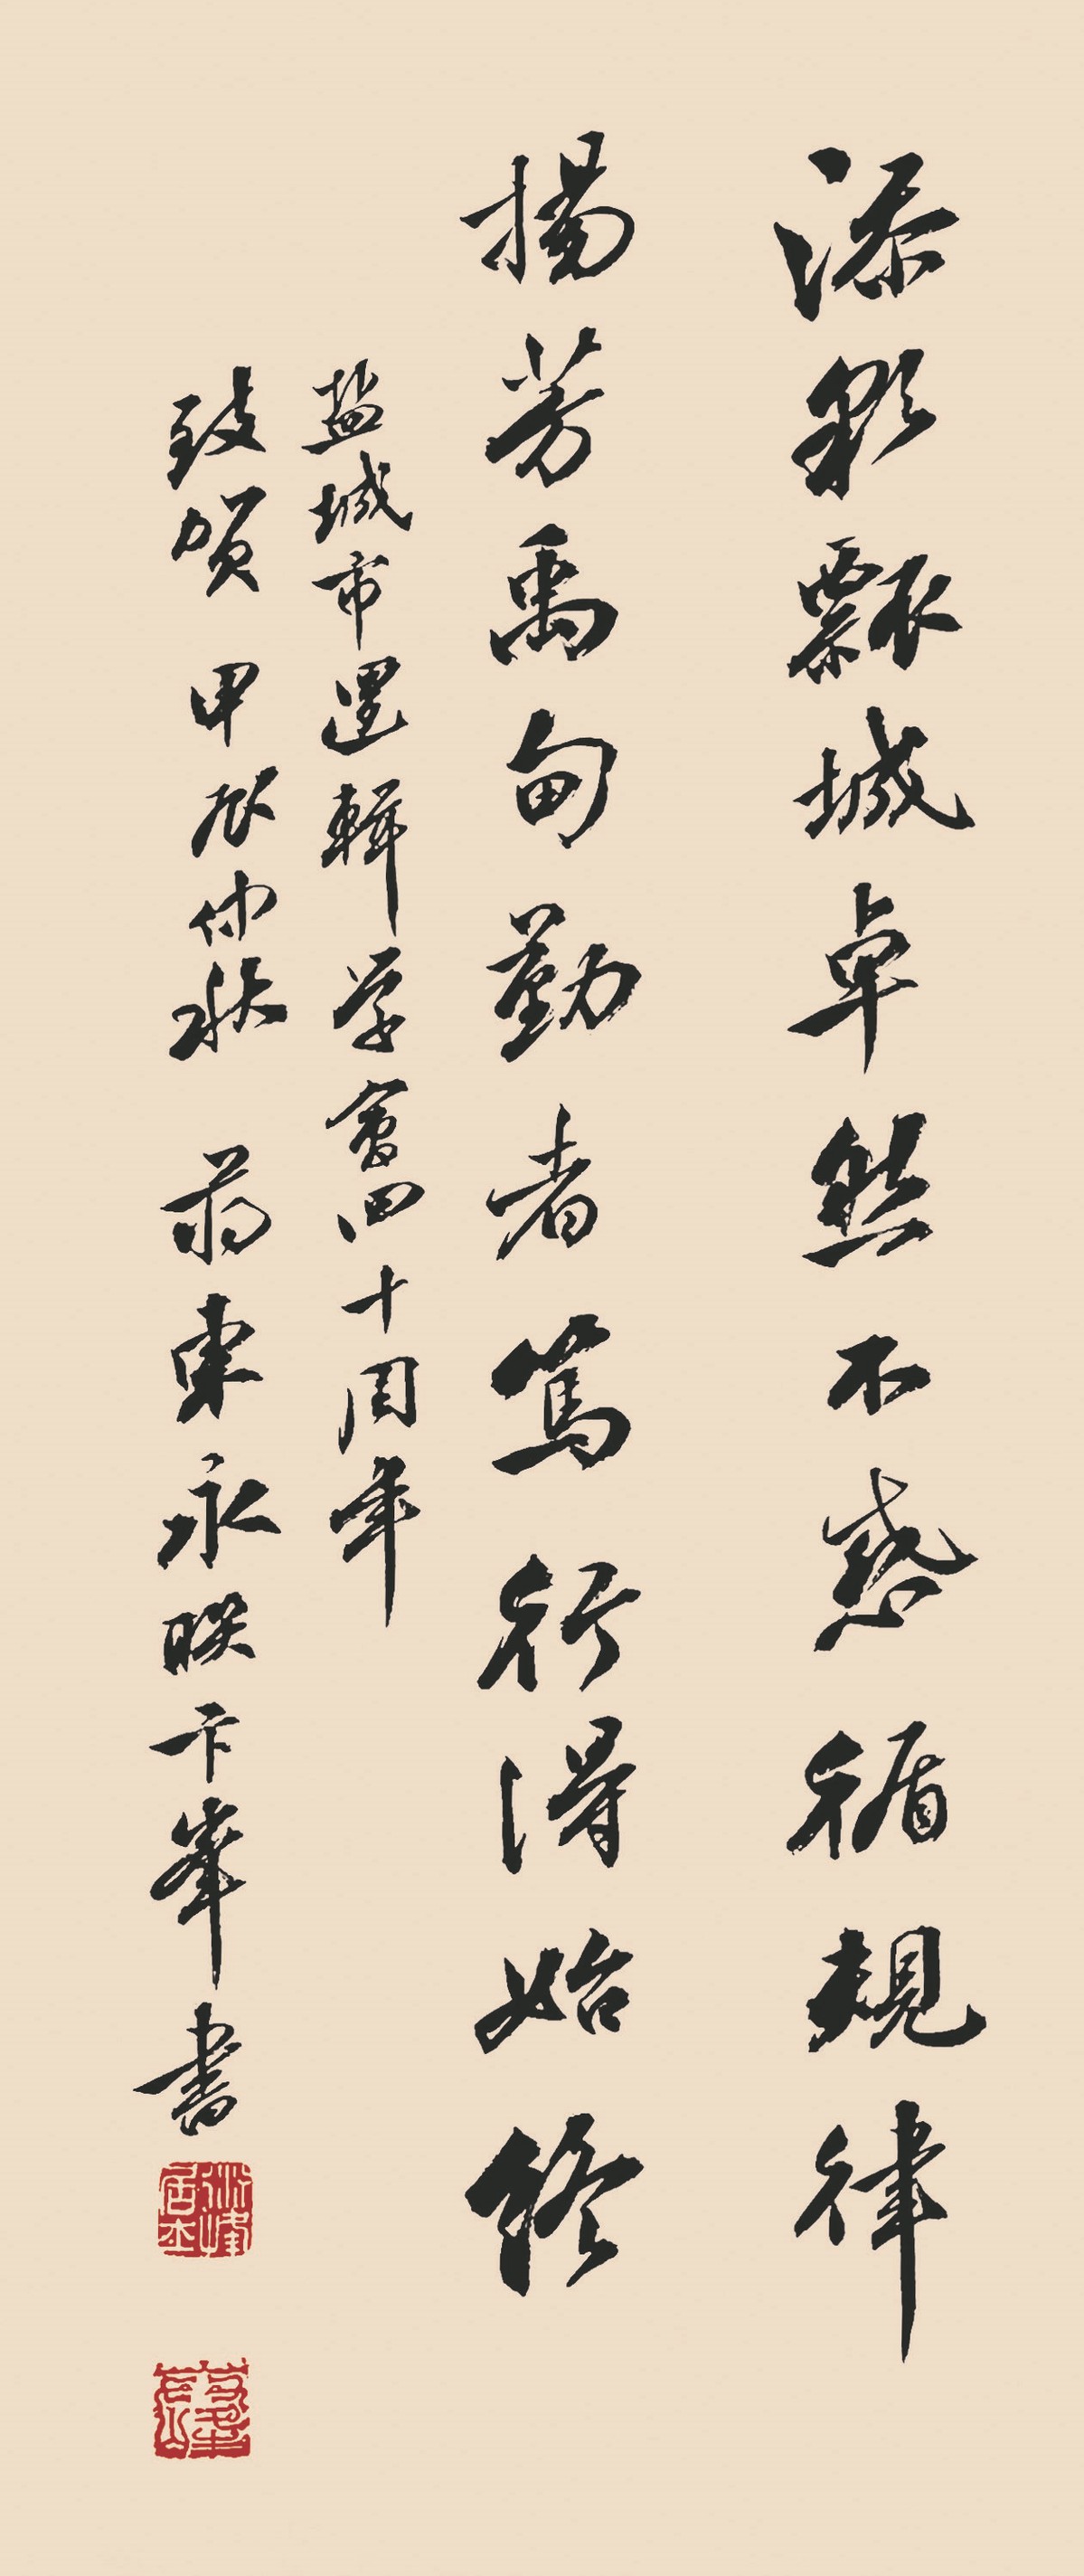 添彩瓢城卓然不惑循規律
揚芳禹甸勤者篤行得始終
盐城市邏輯学會四十周年
致贺 甲辰仲秋 蒋東永联 卞峯書